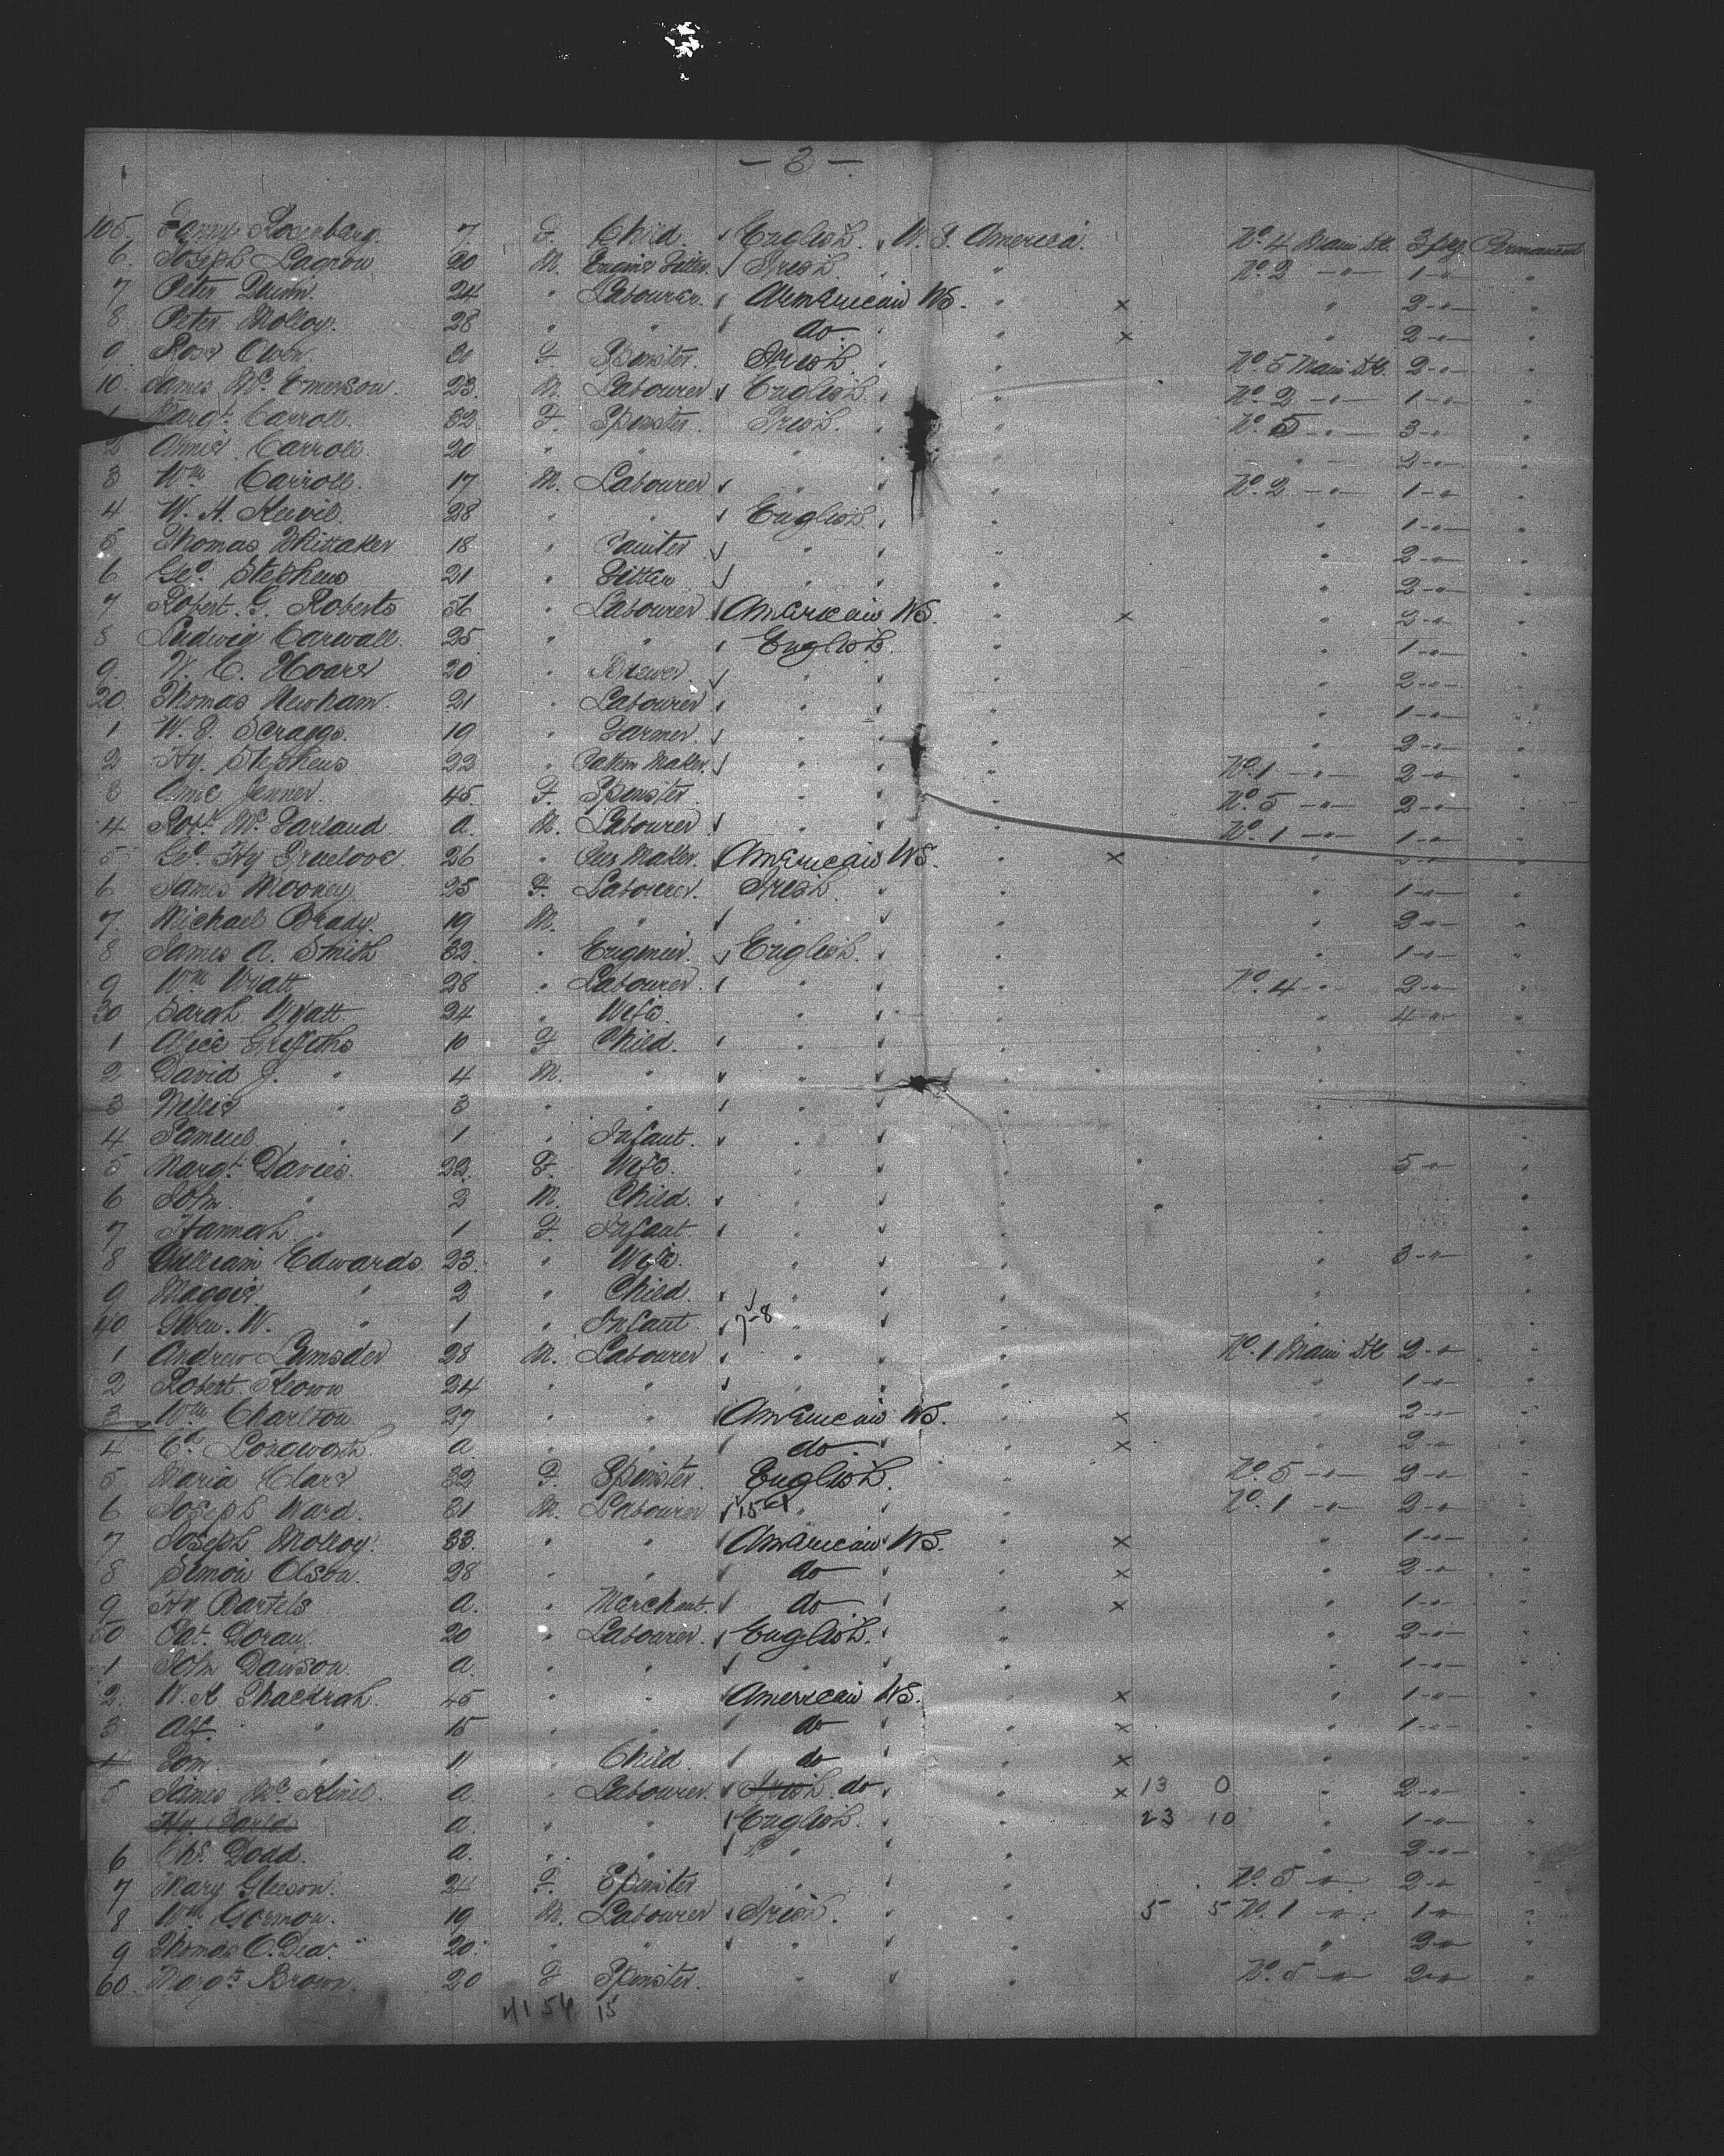 - 3 -
105. Fanny Rosenberg. 7. F. Child. ✓ English. ✓ U. S. America. No. 4 Main Dk. 3 pcg Permanent
6. Joseph 20 M. Engine Fitter. ✓ Irish. " No. 2 -"- 1 -"-
7 Peter Quinn. 24 " Labourer. ✓ American NS. " × " 2 -"- "
8 Peter Molloy. 28 " " ✓ do. " × " 2 -"- "
9 Rose Owen. F Spinster. Irish. " No. 5 Main Dk. 2 -"- "
10. James Mc. Emerson. 23. M. Labourer ✓ English. ✓ " No. 2 -"- 1 -"- "
1 Margt. Carroll. 32. F. Spinster. Irish. ✓ " No. 5 -"- 3 -"- "
2 Annie Carroll. 20 " " " " 2 -"- "
3 Wm. Carroll. 17 M. Labourer ✓ " " No. 2 -"- 1 -"- "
4 W. H. 28 " " ✓ English. ✓ " " 1 -"- "
5 Thomas Whittaker 18 " Painter ✓ " ✓ " " 2 -"- "
6 Geo. Stephens 21 " Fitter ✓ " ✓ " " 2 -"- "
7 Robert. G. Roberts 56 " Labourer ✓ American NS. " × " 2 -"- "
8 Ludwig Carwall. 25 " " ✓ English. " " 1 -"- "
9. W. C. Hoare 20 " Brewer. ✓ " ✓ " " 2 -"- "
20. Thomas Newham. 21 " Labourer ✓ " ✓ " " 1 -"- "
1 W. S. Scraggs. 19 " Farmer ✓ " ✓ " " 2 -"- "
2 Hy. Stephens 22 " Pattern Maker. ✓ " ✓ " No. 1 -"- 2 -"- "
3 Jenner. 45. F. Spinster " ✓ " No. 5 -"- 2 -"- "
4. Robt. Mc. Farland a. M. Labourer ✓ " ✓ " No. 1 -"- 1 -"- "
5 Geo. Hy Truelove. 26 " Maker. ✓ American NS. " × " "
6 James Mooney 25 F. Labourer. Irish. " " 1 -"- "
7. Michael Brady. 19 M. " ✓ " ✓ " " 2 -"- "
8 James A. Smith 32. " Engineer. ✓ English. ✓ " " 1 -"- "
9 Wm Wyatt 28 " Labourer. ✓ " ✓ " No. 4 -"- 2 -"- "
30 Sarah Wyatt 24 " Wife. " ✓ " " 4 -"- "
1 Alice Griffiths 10 F Child. ✓ " ✓ " " "
2 David J. " 4 M. " ✓ " ✓ " " "
3 Willie " 3 " " ✓ " ✓ " " "
4 Samuel " 1 " Infant. ✓ " ✓ " " "
5 Margt. Davies. 22. F. Wife. " ✓ " " 5 -"- "
6 John. " 2 M. Child. ✓ " ✓ " " "
7 Hannah " 1 F. Infant. ✓ " ✓ " " "
8 William Edwards 23. " Wife. " ✓ " " 3 -"- "
9 Maggie " 2 " Child. ✓ " ✓ " " "
40 Gwen. W. " 1 " Infant ✓ 7-8 " ✓ " " "
1 Andrew Lumsden 28 M. Labourer ✓ " ✓ " No. 1 Main Dk 2 -"- "
2 Robert Keown 24 " " ✓ " ✓ " " 1 -"- "
3 Wm Charlton 27 " " ✓ American NS. " × " 2 -"- "
4 Ed. Longworth. a " " do ✓ " × " 2 -"- "
5 Maria Clare 32 F. Spinster. English. " No. 5 -"- 2 -"- "
6 Joseph Ward. 31 M. Labourer ✓ 15 " " No. 1 -"- 2 -"- "
7 Joseph Molloy. 33. " " ✓ American NS. " × " 1 -"- "
8 Simon Olson. 28 " " ✓ do ✓ " × " 2 -"- "
9 Hy Bartels a. " Merchant. ✓ do ✓ " × " 1 -"- "
50 Pat. Doran. 20 " Labourer. ✓ English. ✓ " " 2 -"- "
1 John Dawson. a. " " ✓ " ✓ " " 1 -"- "
2. W. A Thackrah. 45 " " ✓ American NS. " × " 1 -"- "
3 Alf. " 15 " " ✓ do ✓ " × " 1 -"- "
4 Tom. " 11 " Child. ✓ do ✓ " × " "
5 James Mc. a. " Labourer. ✓ Irish. do ✓ " × 13 0 " 2 -"- "
Hy. a. " " ✓ English. ✓ " 23 10 " 1 -"- "
6 Chs. Dodd. a. " " ✓ " ✓ " " 2 -"- "
7 Mary Gleeson. 24 F. Spinster " ✓ " No. 5 -"- 2 -"- "
8 Wm. Gorman. 19 M. Labourer ✓ Irish. ✓ " 5 5 No. 1 -"- 1 -"- "
9 Thomas O.Dea. 20. " " ✓ " ✓ " " 2 -"- "
60. Margt. Brown. 20 F Spinster. " ✓ " No. 5 -"- 2 -"- "
41 54 15